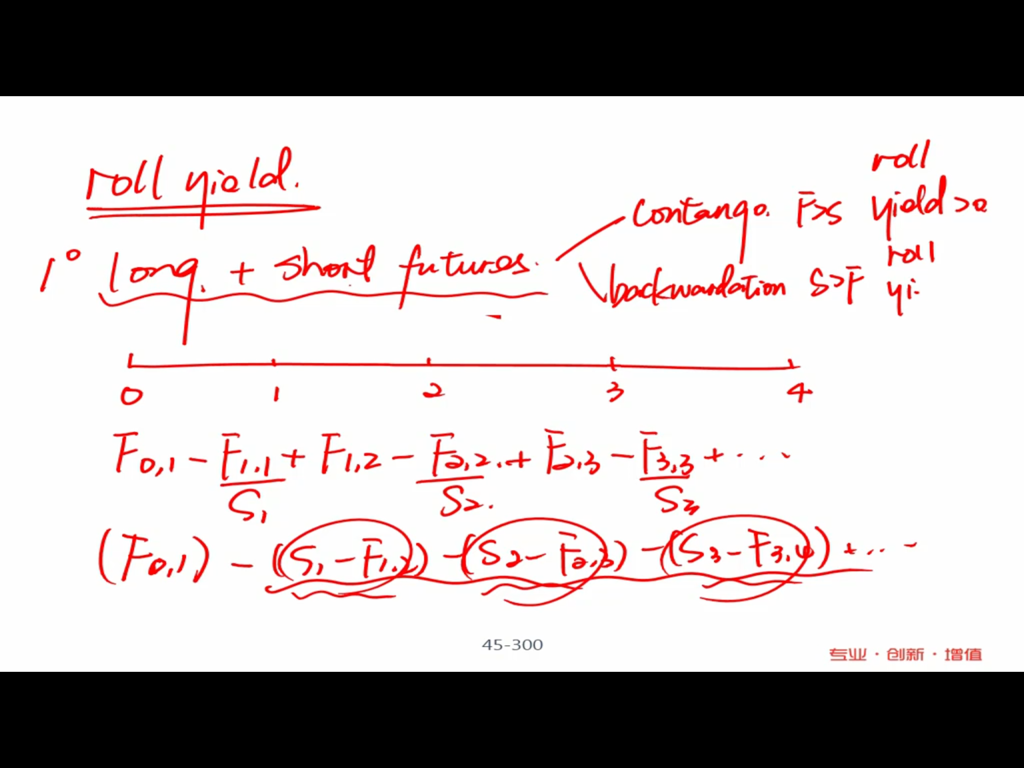 roll yield.
1° long. + short futures.
contango. F>S roll yield>0
backwardation S>F roll yi
0 1 2 3 4
F0,1 - F1,1 + F1,2 - F2,2 + F2,3 - F3,3 + ...
S1 S2. S3
(F0,1) - (S1-F1,2) - (S2-F2,3) - (S3-F3,4) + ...
45-300
专业·创新·增值